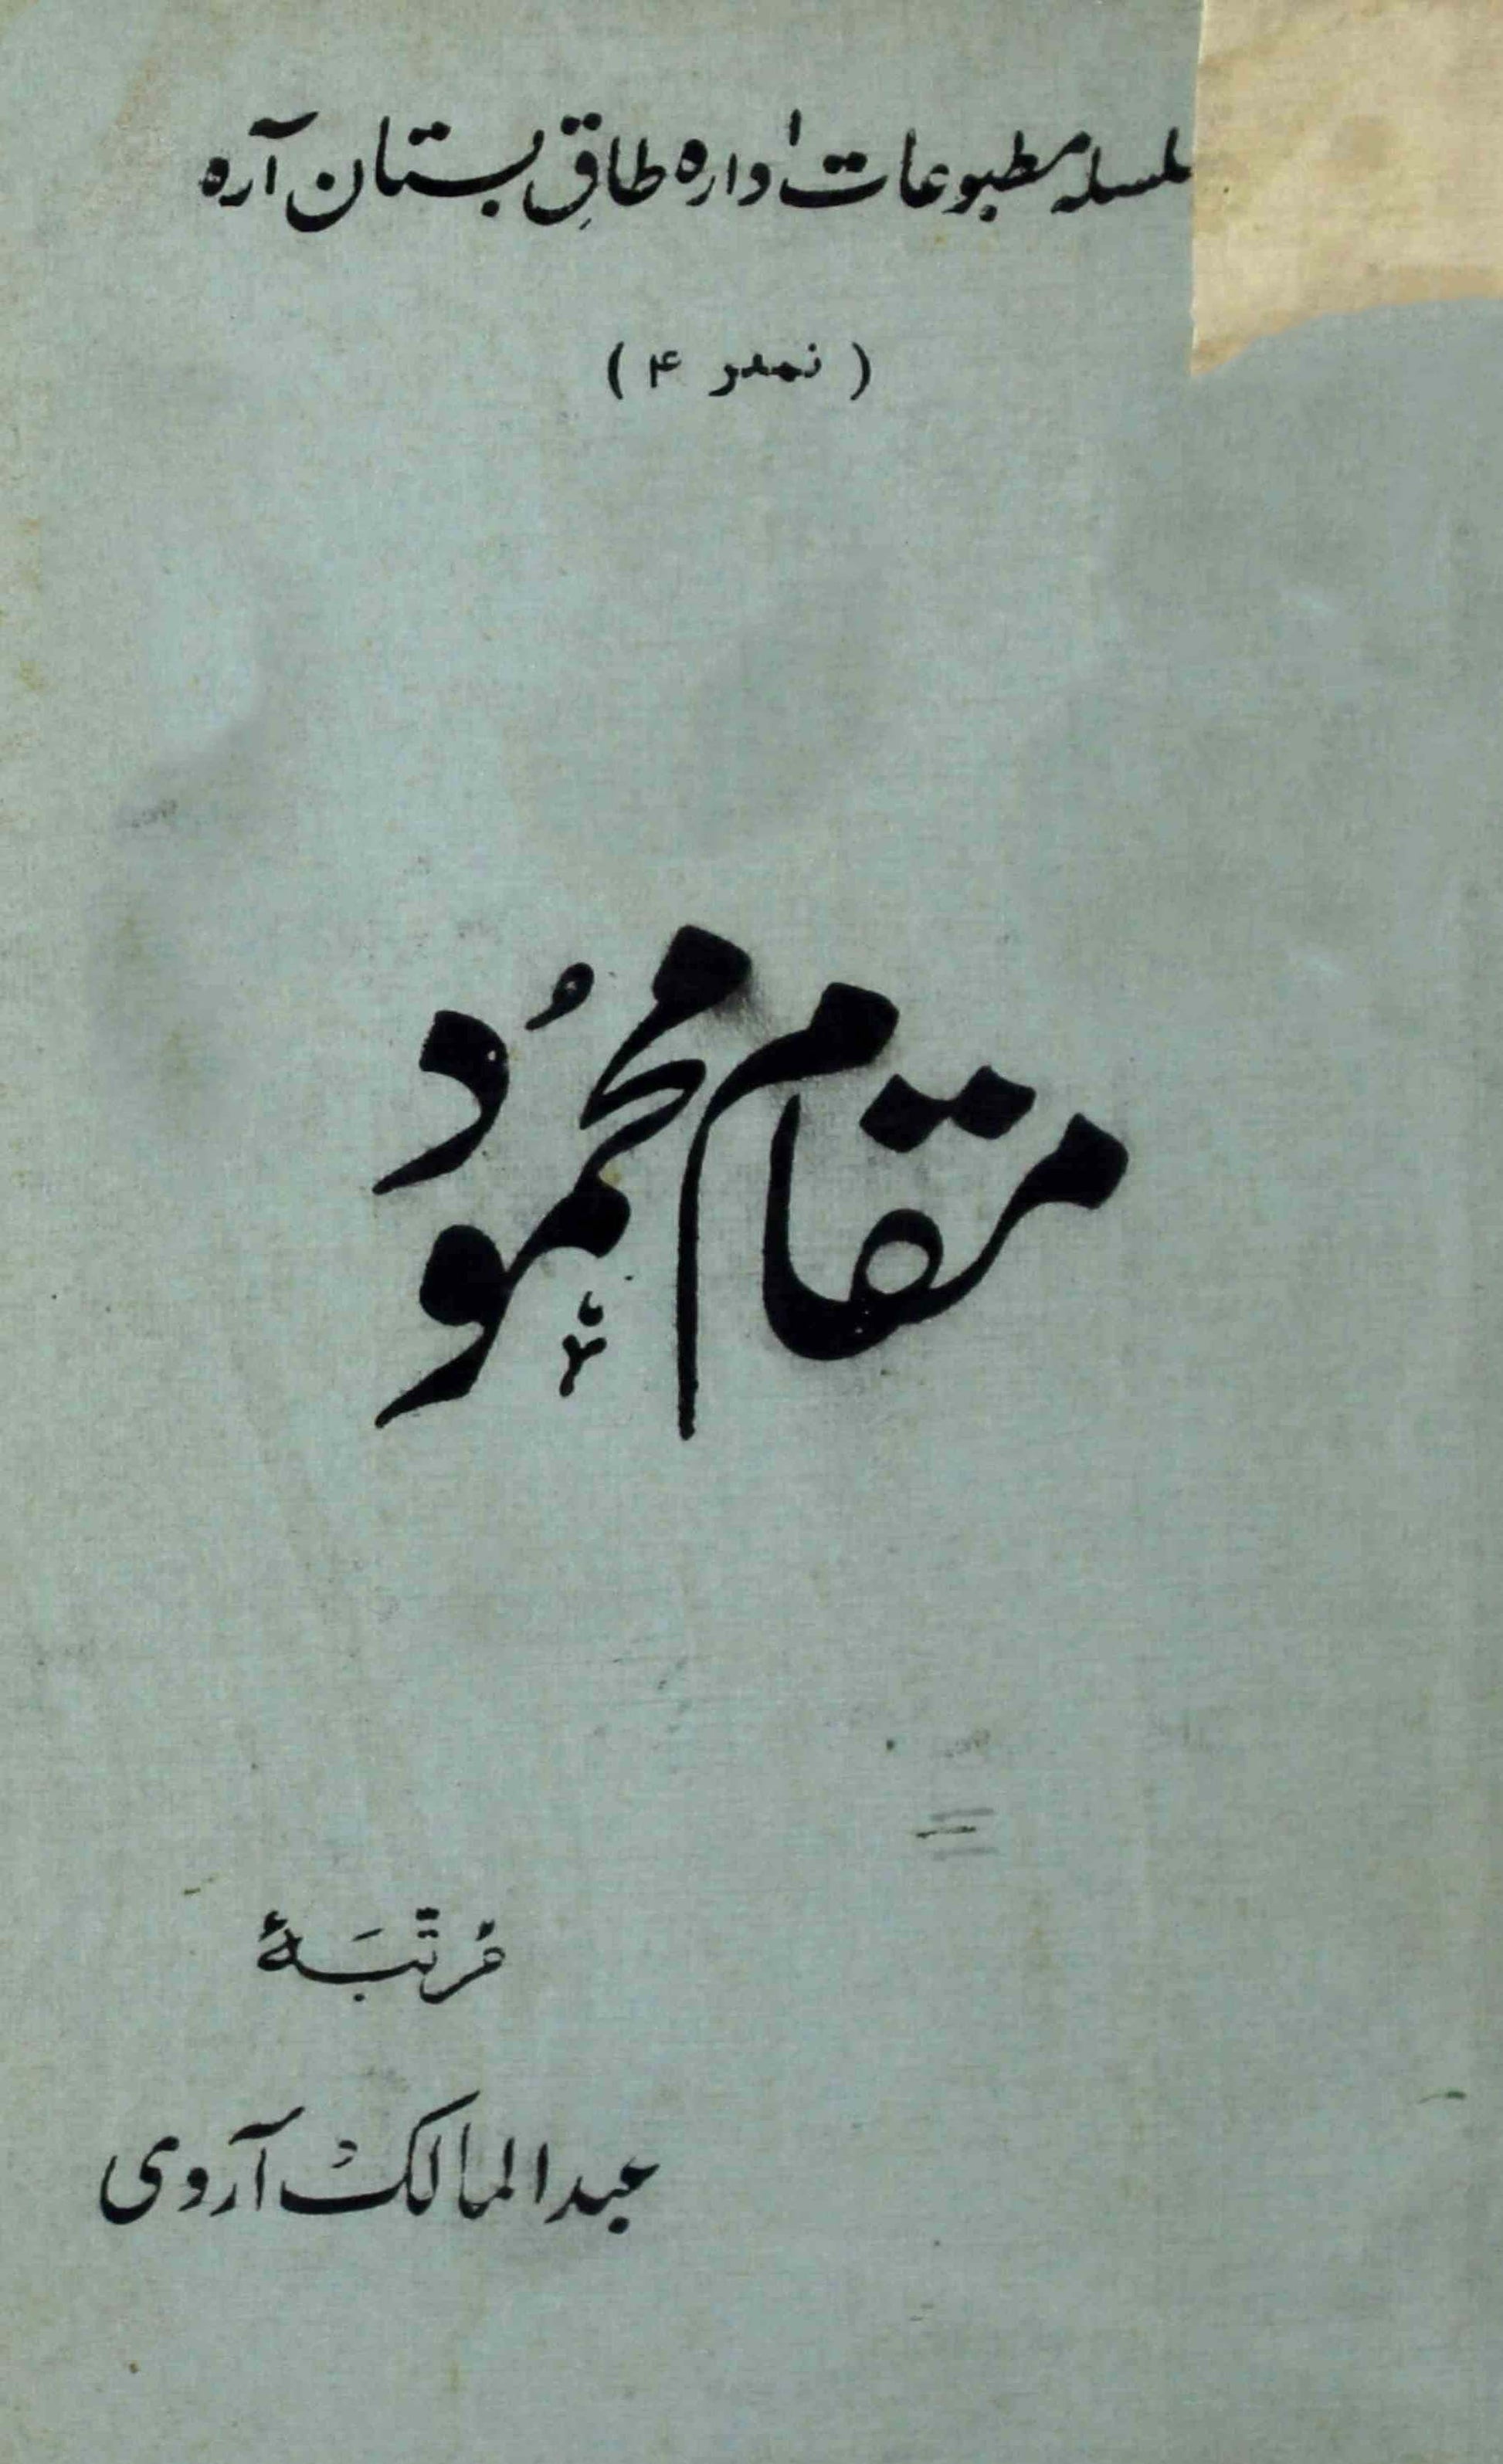 سلسلہ مطبوعات ادارہ طاقِ بستان آرہ
( نمبر ۴ )
مقام محمُود
مرتّبَۂ
عبدالمالک آروی